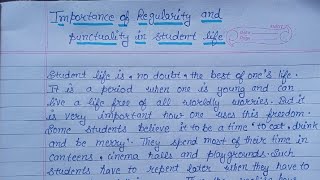 Importance of Regularity and
punctuality in student life
Student life is no doubt the best of one's life.
It is a period when one is young and can
live a life free of all worldly worries. But it
is very important how one uses this freedom.
Some students believe it to be a time "to eat, drink
and be merry". They spend most of their time in
canteens, cinema halls and playgrounds. Such
students have to repent later when they have to